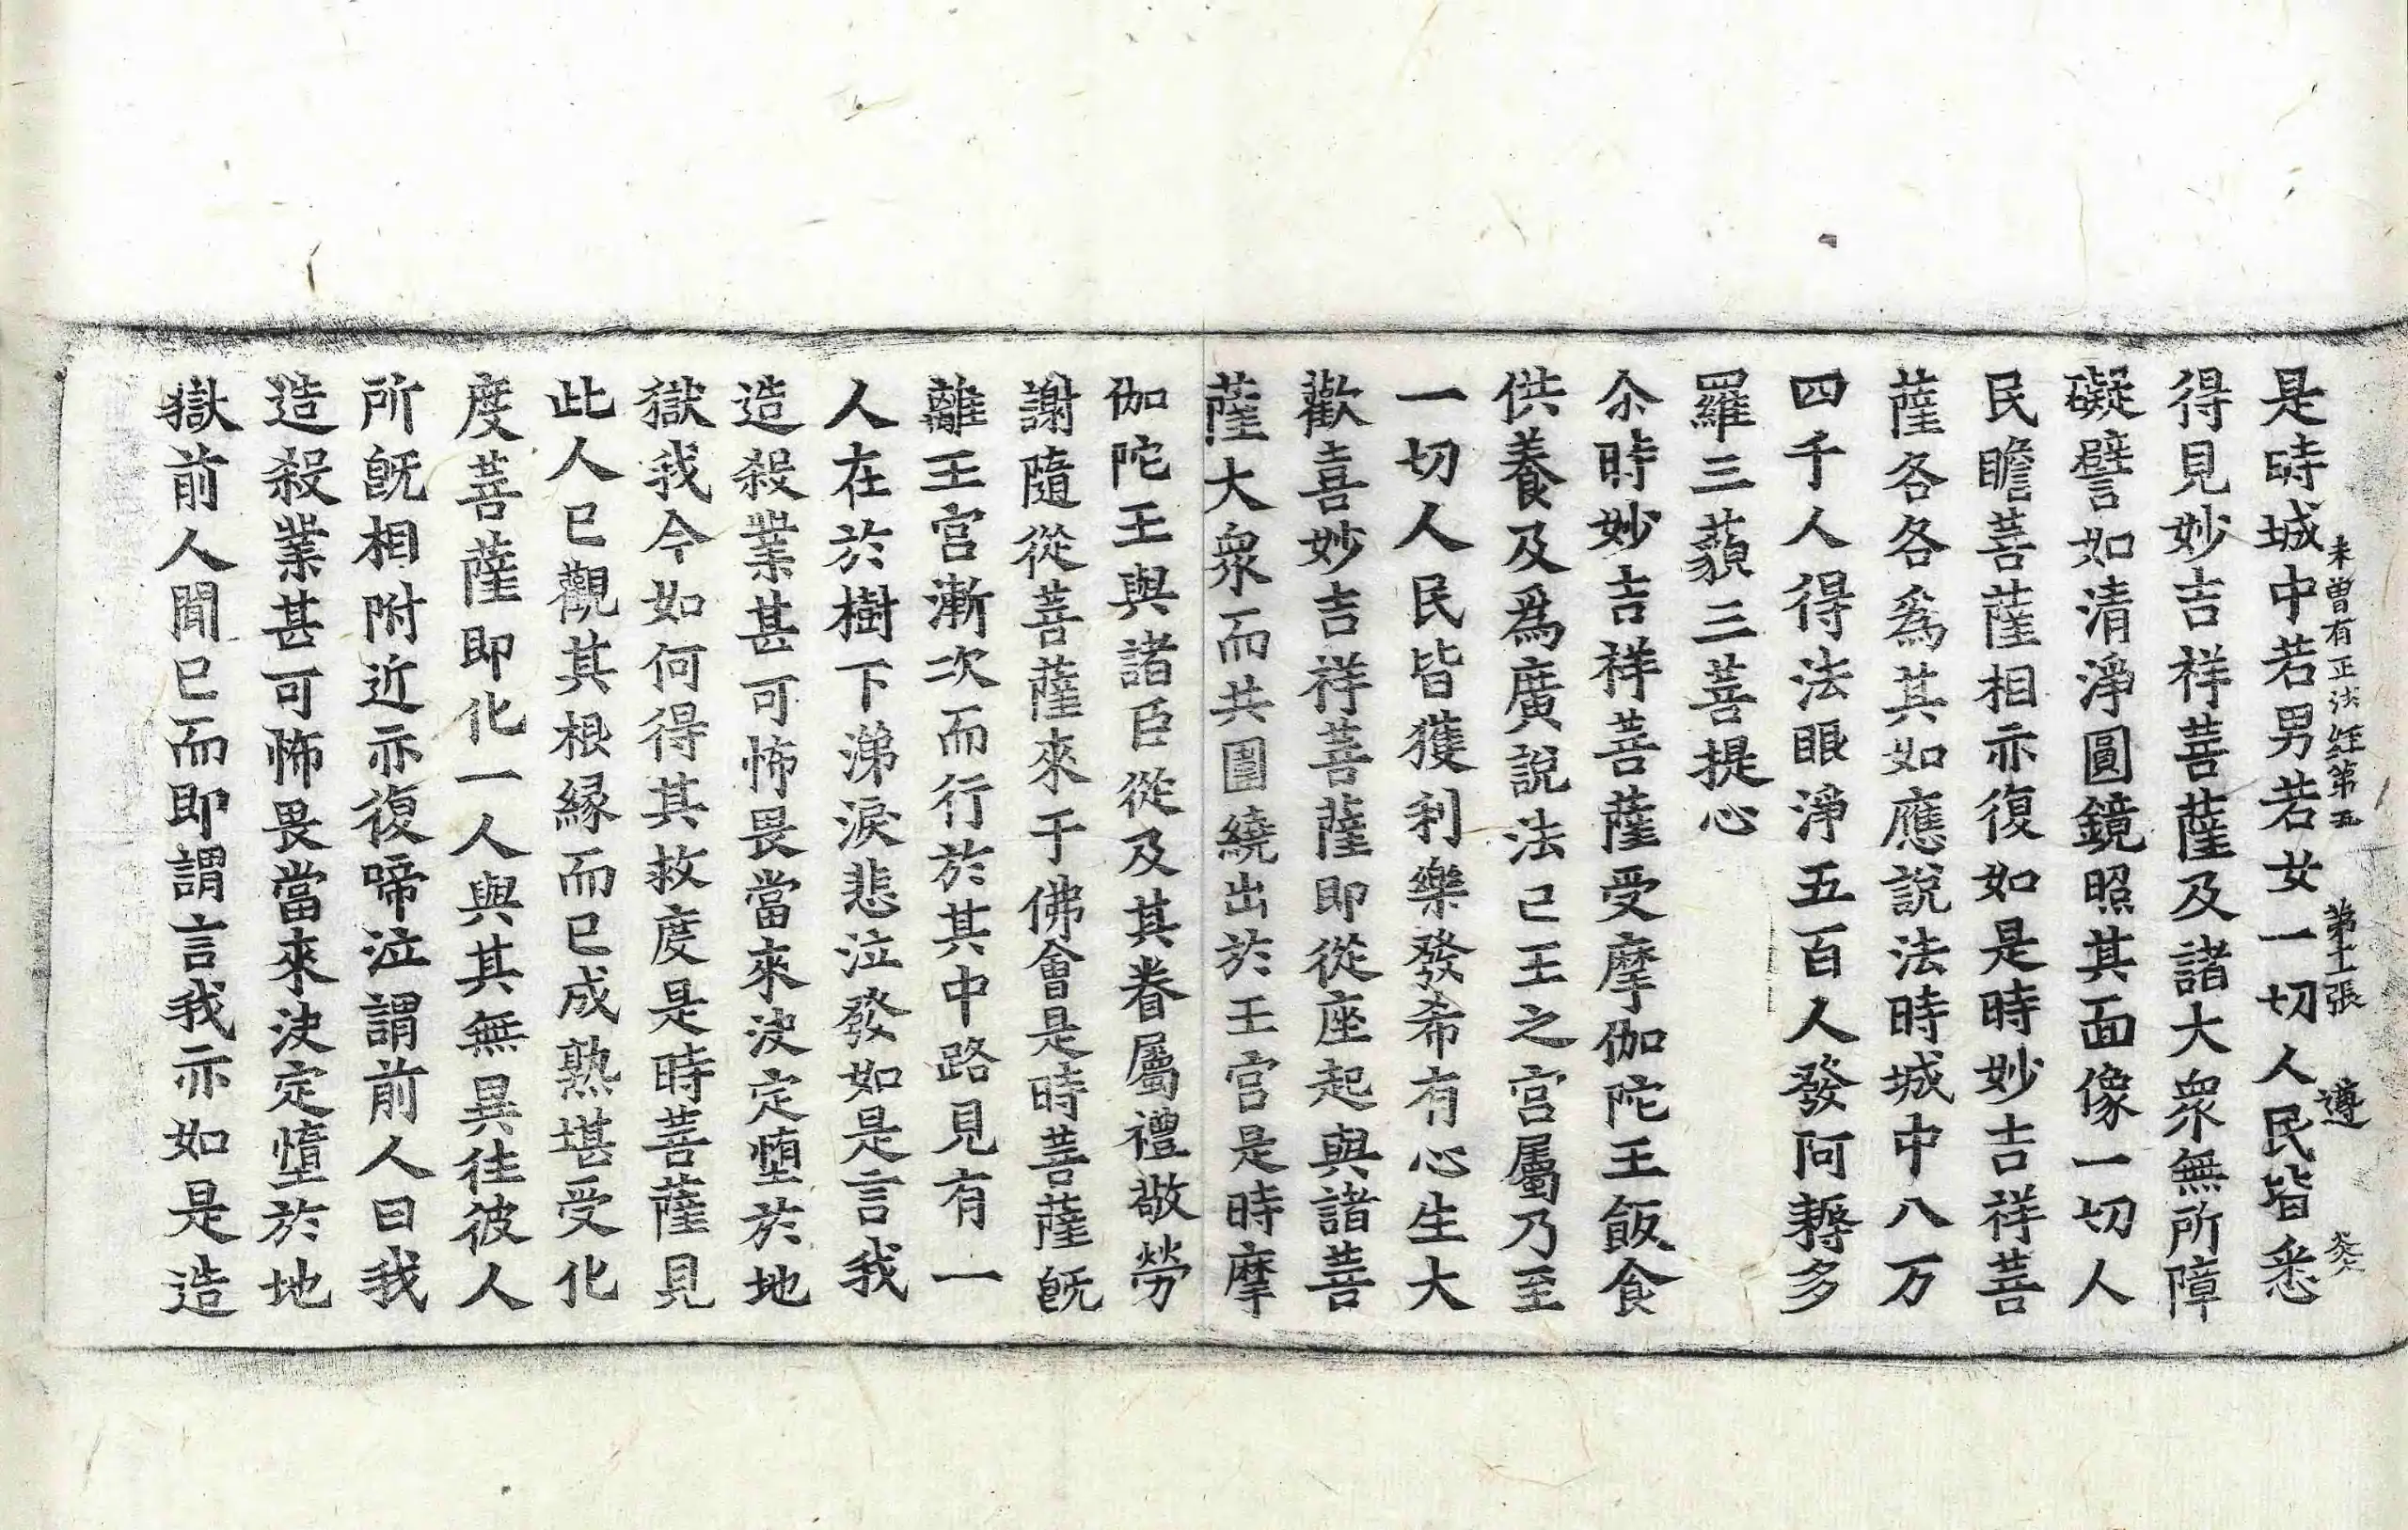 未曾有正法經第五 第十二張 遵 㷊
是時城中若男若女一切人民皆悉
得見妙吉祥菩薩及諸大衆無所障
礙譬如清淨圓鏡照其面像一切人
民瞻菩薩相亦復如是時妙吉祥菩
薩各各爲其如應說法時城中八万
四千人得法眼淨五百人發阿耨多
羅三藐三菩提心
尒時妙吉祥菩薩受摩伽陀王飯食
供養及爲廣說法已王之宫屬乃至
一切人民皆獲利樂發希有心生大
歡喜妙吉祥菩薩即從座起與諸菩
薩大衆而共圍繞出於王宫是時摩
伽陀王與諸臣從及其眷屬禮敬勞
謝隨從菩薩來于佛會是時菩薩旣
離王宫漸次而行於其中路見有一
人在於樹下涕淚悲泣發如是言我
造殺業甚可怖畏當來決定墮於地
獄我今如何得其救度是時菩薩見
此人已觀其根緣而已成熟堪受化
度菩薩即化一人與其無異往彼人
所旣相附近亦復啼泣謂前人曰我
造殺業甚可怖畏當來決定墮於地
獄前人聞已而即謂言我亦如是造